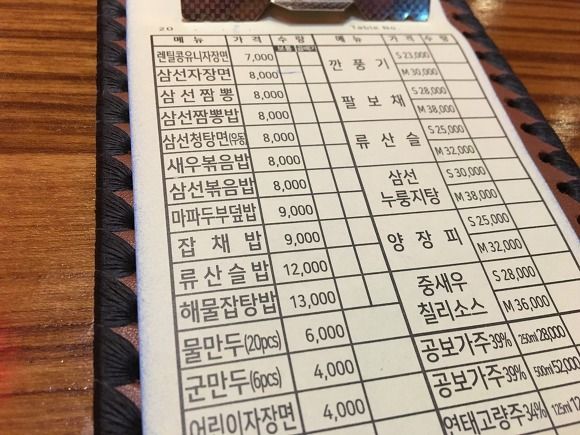 20
Table No.
메뉴 가격 수량 메뉴 가격 수량
보통 곱배기
렌틸콩유니자장면 7,000
삼선자장면 8,000
삼선짬뽕 8,000
삼선짬뽕밥 8,000
삼선청탕면(우동) 8,000
새우볶음밥 8,000
삼선볶음밥 8,000
마파두부덮밥 9,000
잡채밥 9,000
류산슬밥 12,000
해물잡탕밥 13,000
물만두(20pcs) 6,000
군만두(6pcs) 4,000
어린이자장면 4,000
깐풍기 S 23,000
M 30,000
팔보채 S 28,000
M 38,000
류산슬 S 25,000
M 32,000
삼선
누룽지탕 S 30,000
M 38,000
양장피 S 25,000
M 32,000
중새우
칠리소스 S 28,000
M 36,000
공보가주39% 250ml 28,000
공보가주39% 500ml 52,000
연태고량주34% 125ml 12